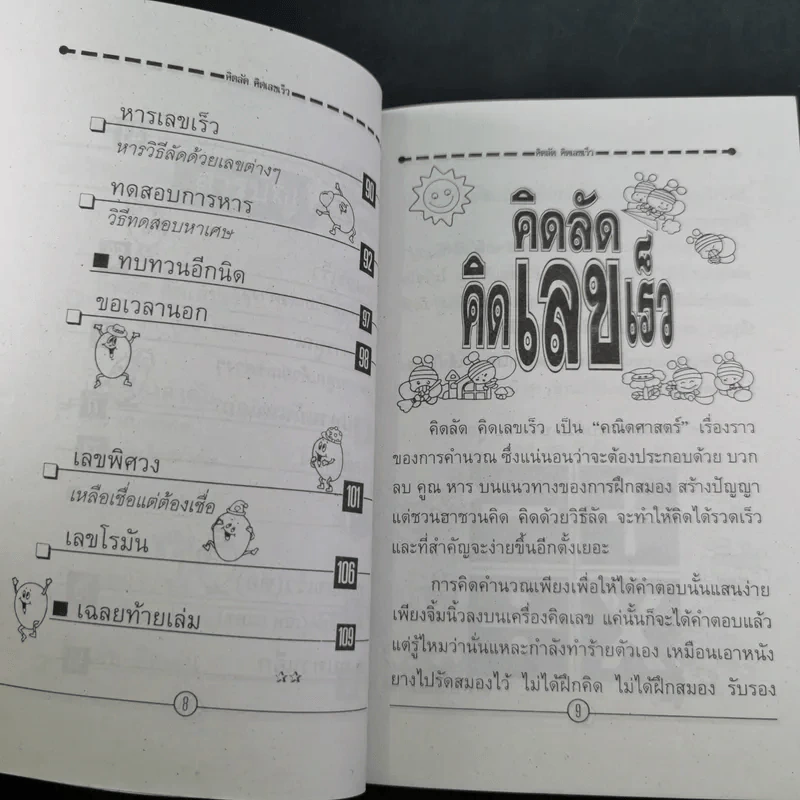 คิดลัด คิดเลขเร็ว
หารเลขเร็ว
หารวิธีลัดด้วยเลขต่างๆ
90
ทดสอบการหาร
วิธีทดสอบหาเศษ
92
ทบทวนอีกนิด
97
ขอเวลานอก
98
เลขพิศวง
101
เหลือเชื่อแต่ต้องเชื่อ
เลขโรมัน
106
เฉลยท้ายเล่ม
109
8
คิดลัด คิดเลขเร็ว
คิดลัด
คิดเลขเร็ว
คิดลัด คิดเลขเร็ว เป็น “คณิตศาสตร์” เรื่องราว
ของการคำนวณ ซึ่งแน่นอนว่าจะต้องประกอบด้วย บวก
ลบ คูณ หาร บนแนวทางของการฝึกสมอง สร้างปัญญา
แต่ชวนฮาชวนคิด คิดด้วยวิธีลัด จะทำให้คิดได้รวดเร็ว
และที่สำคัญจะง่ายขึ้นอีกตั้งเยอะ
การคิดคำนวณเพียงเพื่อให้ได้คำตอบนั้นแสนง่าย
เพียงจิ้มนิ้วลงบนเครื่องคิดเลข แค่นั้นก็จะได้คำตอบแล้ว
แต่รู้ไหมว่านั่นแหละกำลังทำร้ายตัวเอง เหมือนเอาหนัง
ยางไปรัดสมองไว้ ไม่ได้ฝึกคิด ไม่ได้ฝึกสมอง รับรอง
9